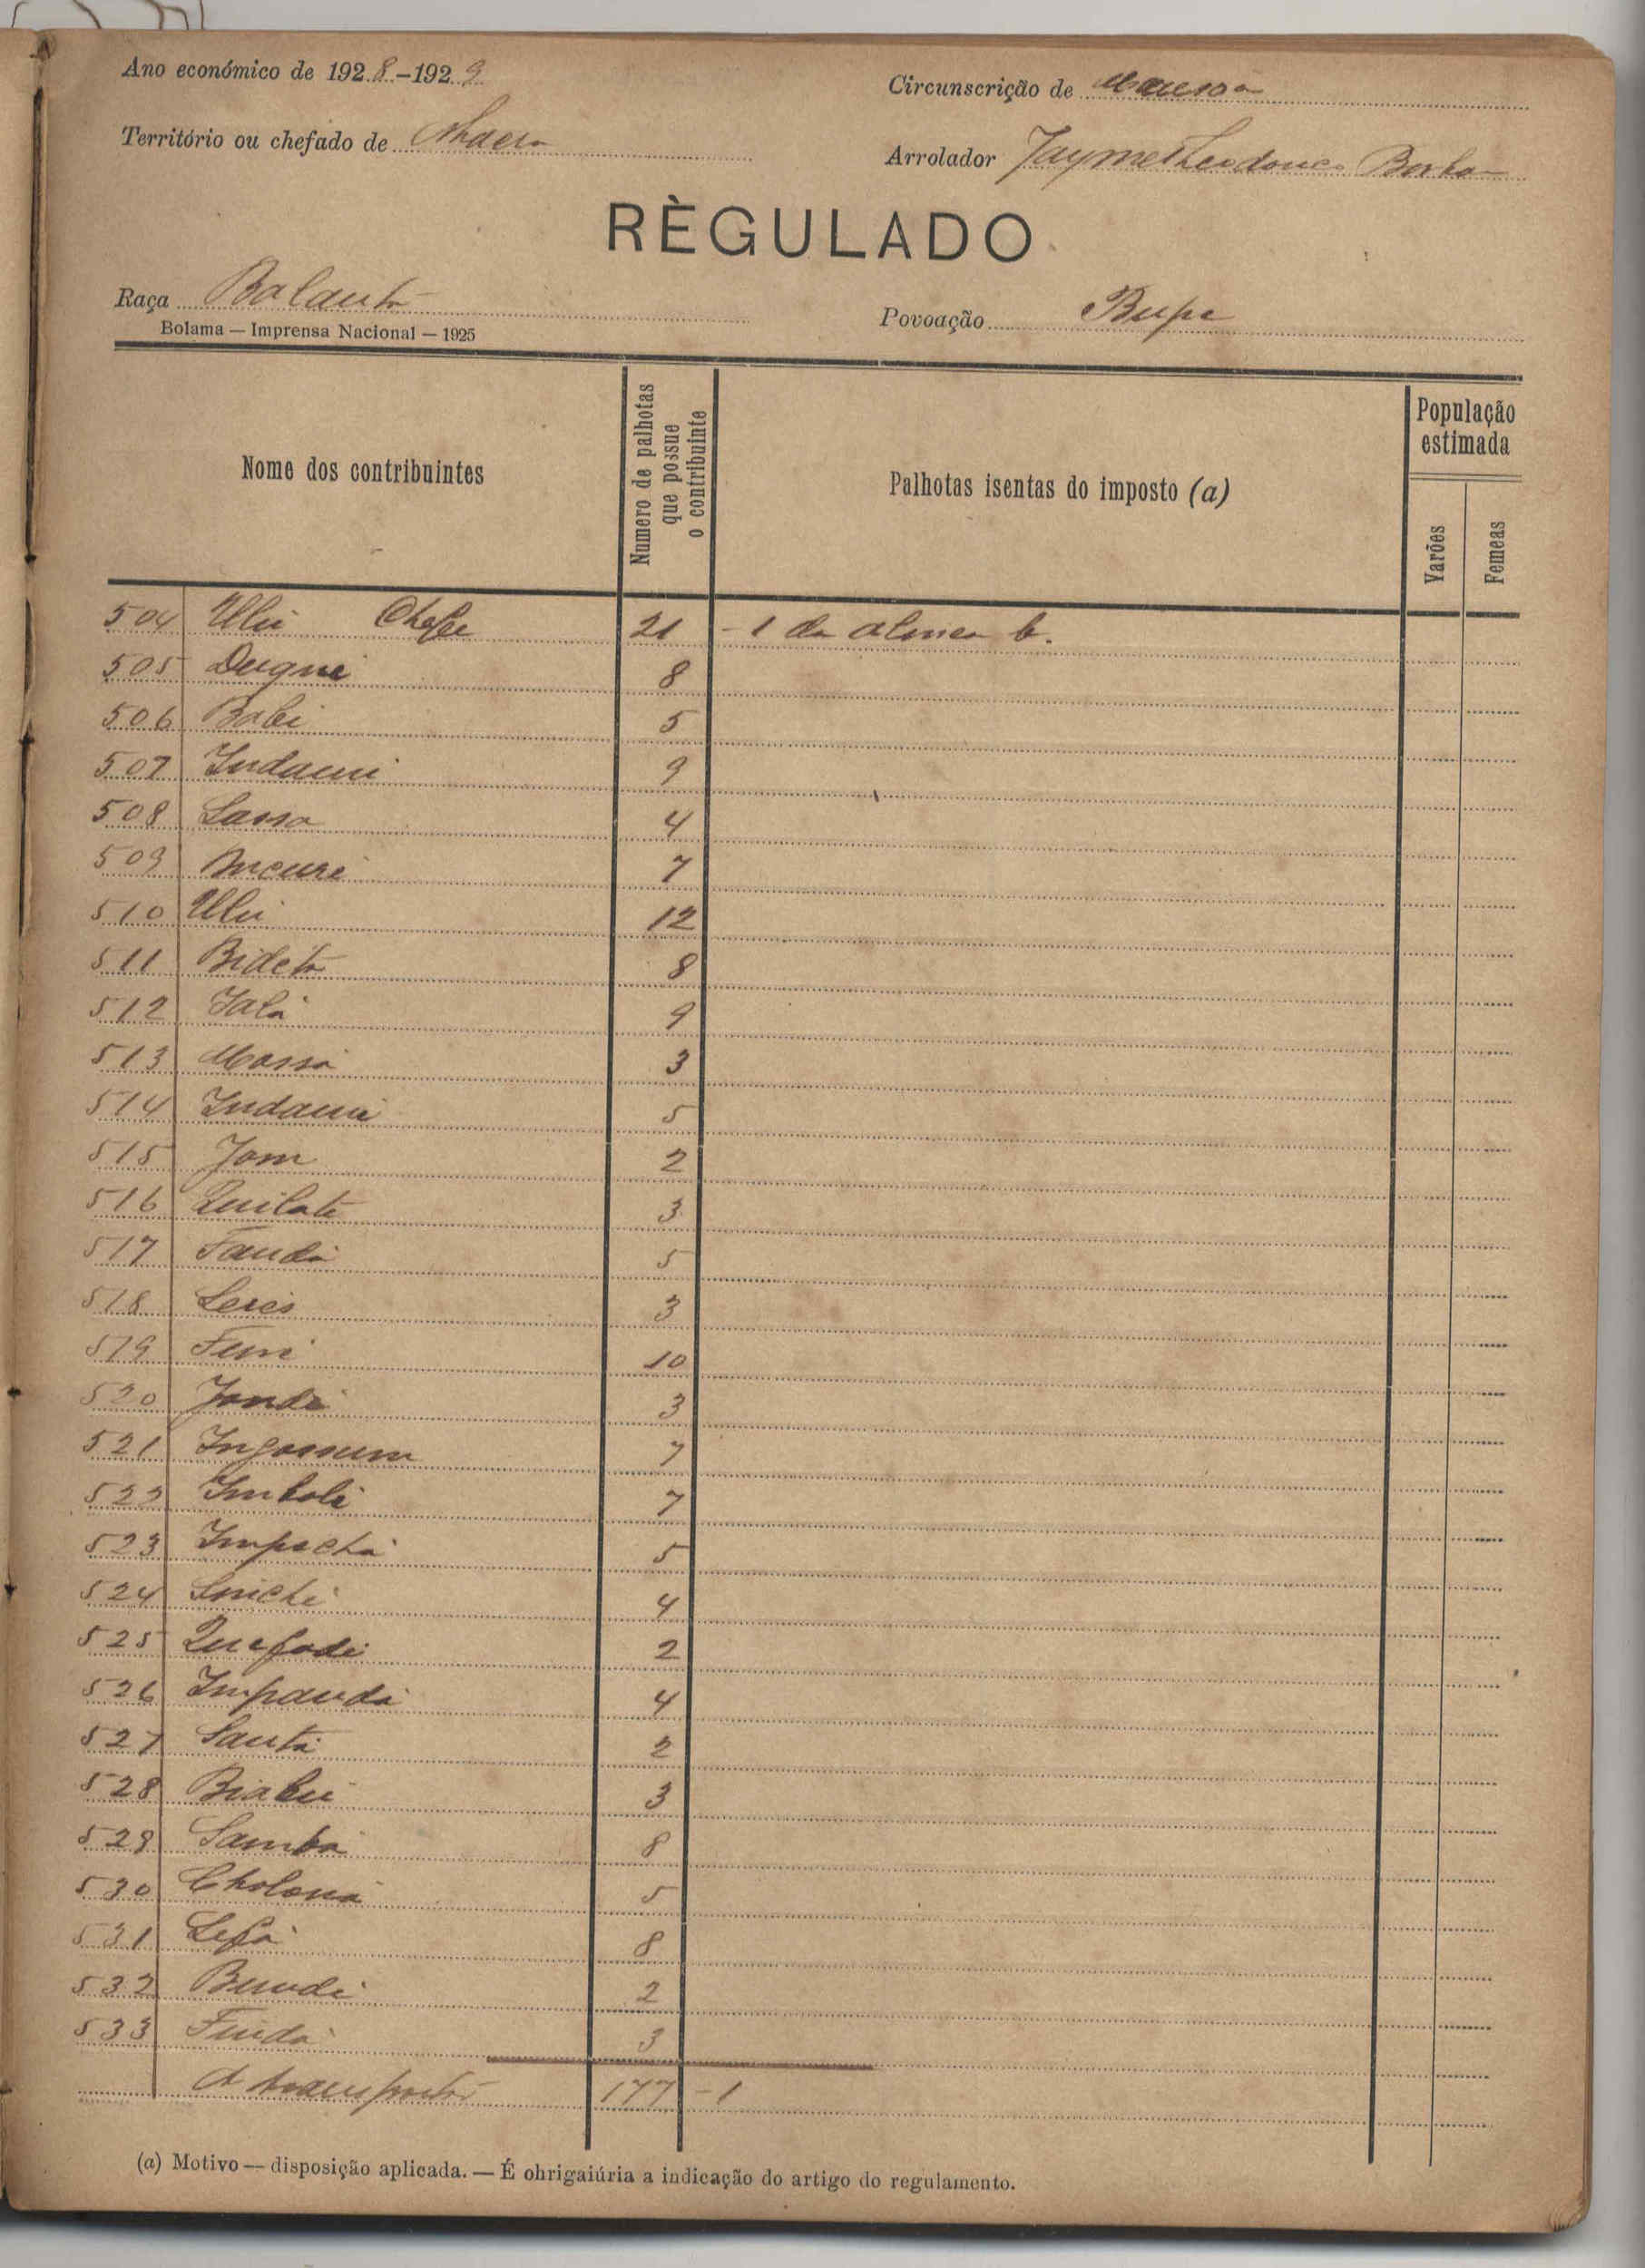 Ano económico de 1928-1929
Circunscrição de Mansoa
Território ou chefado de
Arrolador Jayme Theodouco Barbo
RÈGULADO
Raça Balanta
Bolama — Imprensa Nacional — 1925
Povoação Bupe
Nome dos contribuintes
Numero de palhotas que possue o contribuinte
Palhotas isentas do imposto (a)
População estimada
Varões
Femeas
504 Ulu Chefe 21 - 1 da alinea b.
505 Dugné 8
506 Babi 5
507 Indami 9
508 Sanso 4
509 Incuré 7
510 Ulu 12
511 Bidéta 8
512 Jalá 9
513 Massá 3
514 Indami 5
515 Jom 2
516 Quilate 3
517 Tandá 5
518 3
519 Funi 10
520 Jandi 3
521 Ingossum 7
522 Imbali 7
523 Impachá 5
524 4
525 Quefadé 2
526 Impandá 4
527 Santá 2
528 Biabú 3
529 Sambá 8
530 5
531 Lefá 8
532 Bundi 2
533 Findá 3
A transportar 177 - 1
(a) Motivo — disposição aplicada. — É obrigaiúria a indicação do artigo do regulamento.